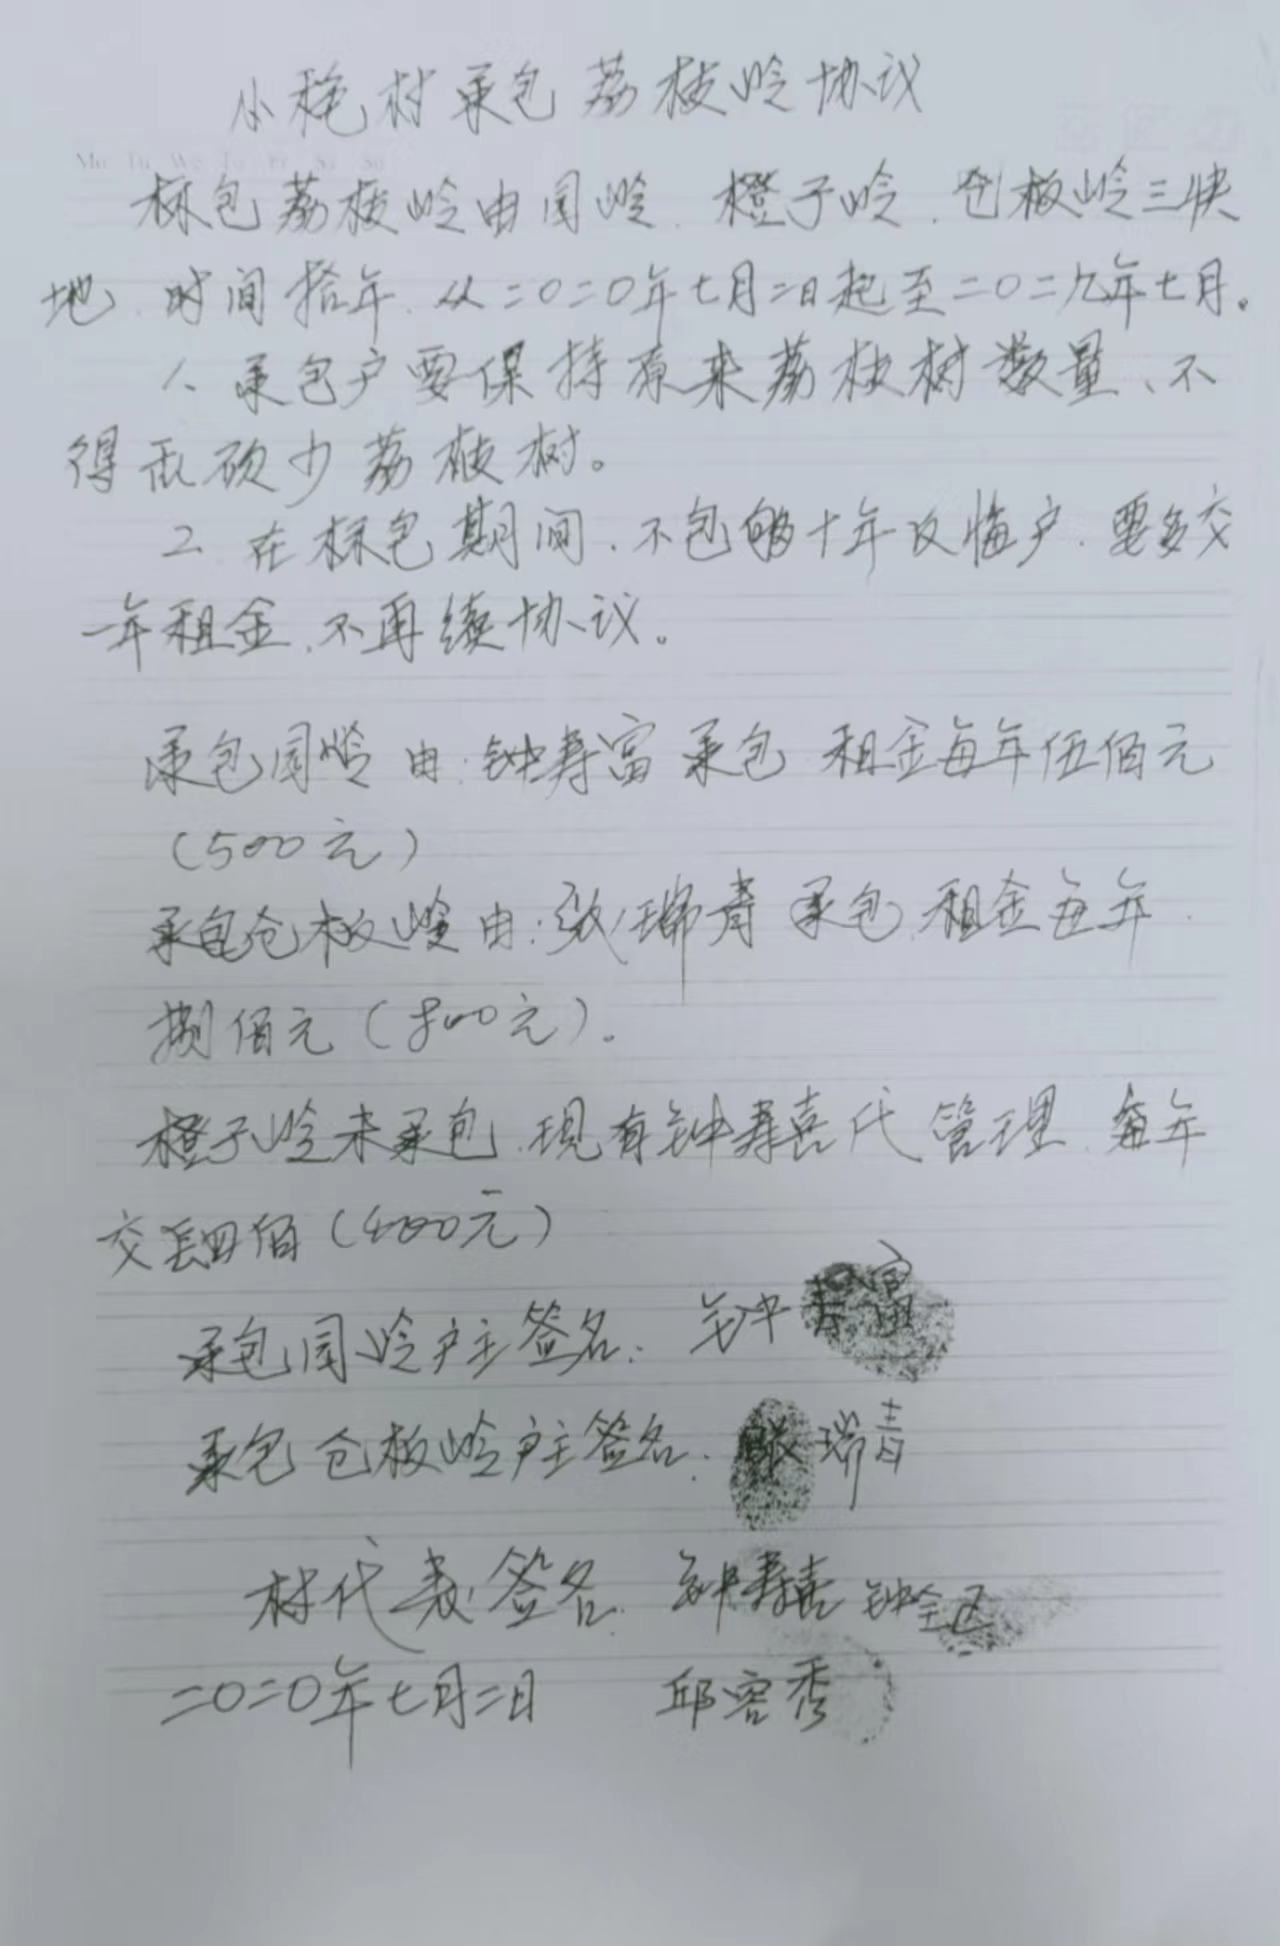 小 村承包荔枝岭协议
Mo Tu We Th Fr Sa Su
标包荔枝岭由园岭、橙子岭、仓板岭三块
地、时间拾年、从二〇二〇年七月二日起至二〇二九年七月。
1、承包户要保持原来荔枝树数量、不
得乱砍少荔枝树。
2、在标包期间、不包够十年反悔户、要多交
一年租金、不再续协议。
承包园岭由：钟寿富承包 租金每年伍佰元
（500元）
承包仓板岭由：张瑞青承包、租金每年
捌佰元（800元）。
橙子岭未承包、现有钟寿喜代管理、每年
交 四佰（400元）
承包园岭户主签名：钟寿富
承包仓板岭户主签名：张瑞青
村代表签名：钟寿喜 钟全
二〇二〇年七月二日 邱容秀